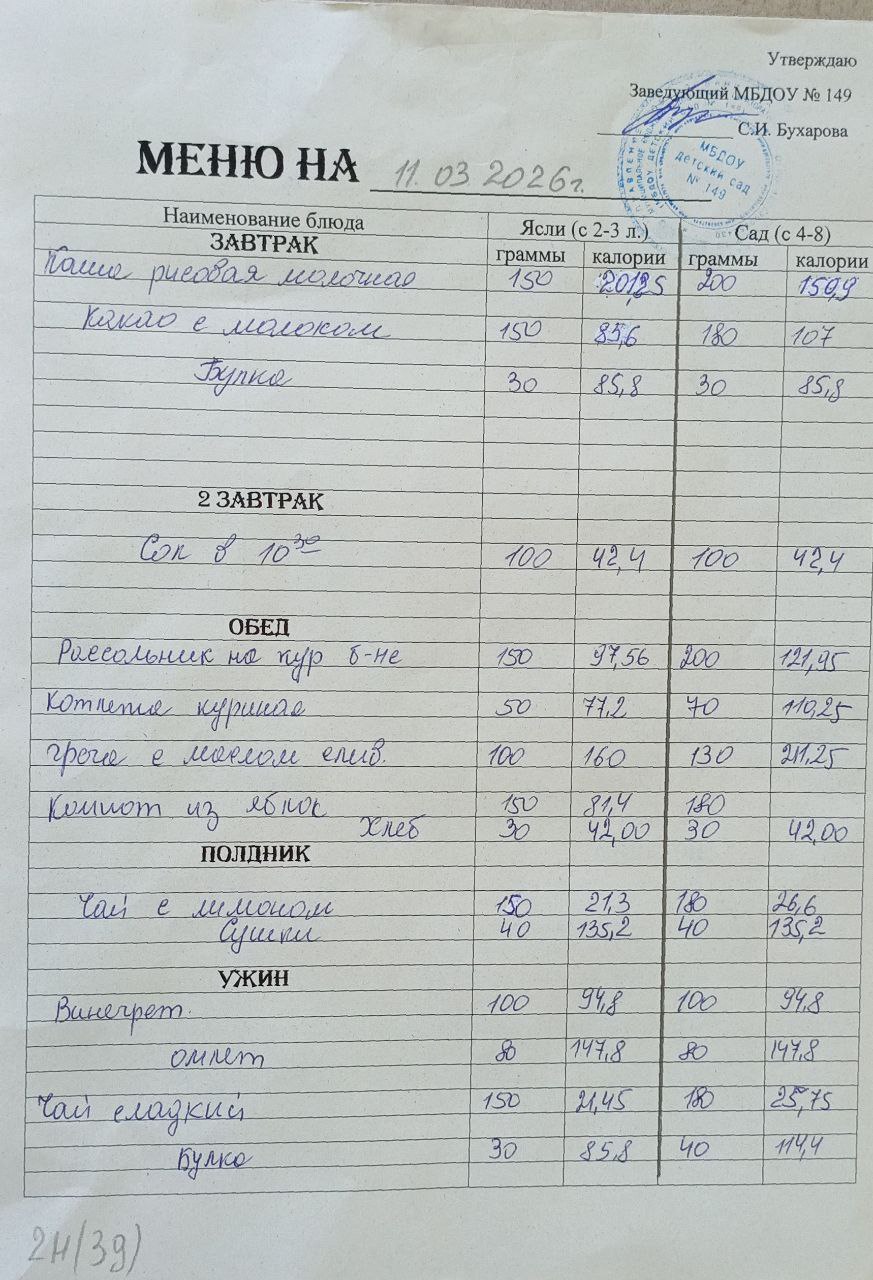 Утверждаю
Заведующий МБДОУ № 149
С.И. Бухарова
МБДОУ
детский сад
№ 149
МЕНЮ НА 11.03 2026г.
Наименование блюда Ясли (с 2-3 л.) Сад (с 4-8)
ЗАВТРАК граммы калории граммы калории
Каша рисовая молочная 150 201,25 200 150,9
Какао с молоком 150 85,6 180 107
Булка 30 85,8 30 85,8
2 ЗАВТРАК
Сок в 10 30 100 42,4 100 42,4
ОБЕД
Рассольник на кур б-не 150 97,56 200 121,95
Котлета куриная 50 77,2 70 110,25
греча с маслом слив. 100 160 130 211,25
Компот из яблок 150 81,4 180
Хлеб 30 42,00 30 42,00
ПОЛДНИК
Чай с лимоном 150 21,3 180 26,6
Сушки 40 135,2 40 135,2
УЖИН
Винегрет. 100 94,8 100 94,8
омлет 80 147,8 80 147,8
Чай сладкий 150 21,45 180 25,75
Булка 30 85,8 40 114,4
2Н(39)